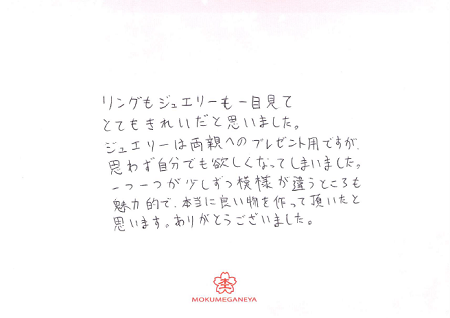 リングもジュエリーも一目見て
とてもきれいだと思いました。
ジュエリーは両親へのプレゼント用ですが、
思わず自分でも欲しくなってしまいました。
一つ一つが少しずつ模様が違うところも
魅力的で、本当に良い物を作って頂いたと
思います。ありがとうございました。
MOKUMEGANEYA